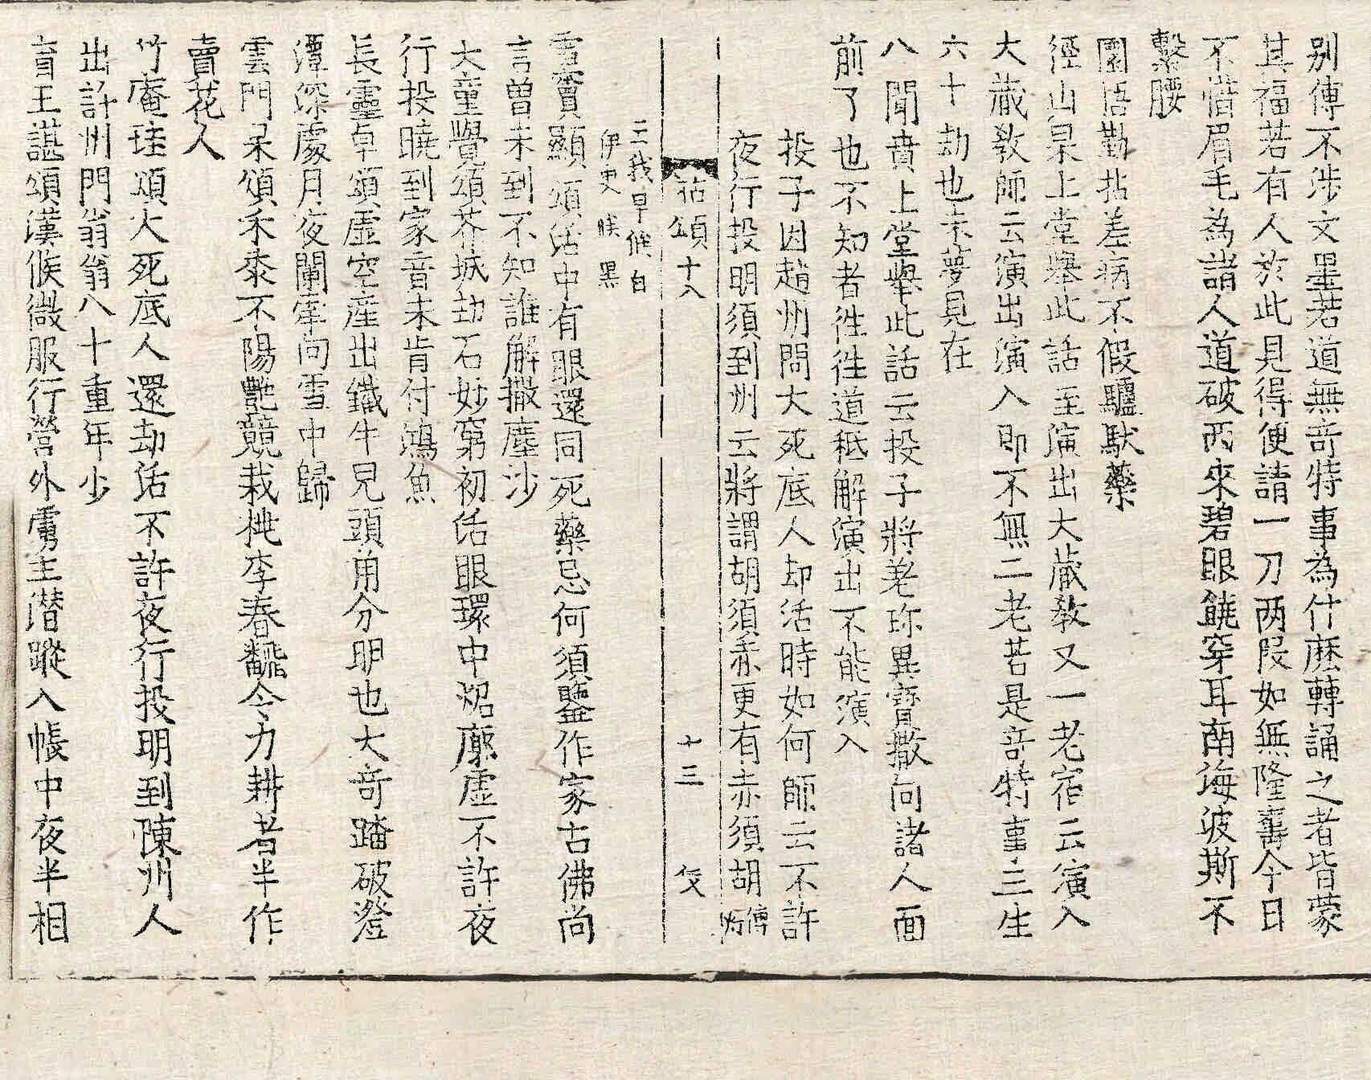 別傳不涉文墨若道無奇特事為什麽轉誦之者皆蒙
其福若有人於此見得便請一刀两段如無隆壽今日
不惜眉毛為諸人道破西來碧眼鐃穿耳南海波斯不
繫腰
圜悟勤拈差病不假驢馱藥
徑山杲上堂舉此話至演出大藏教又一老宿云演入
大藏教師云演出演入即不無二老若是奇特事三生
六十劫也未夢見在
八聞賁上堂舉此話云投子將差珎異寶撒向諸人面
前了也不知者徃徃道秪解演出不能演入
投子因趙州問大死底人却活時如何師云不許
夜行投明須到州云將謂胡須赤更有赤須胡傳燈
拈頌十八 十三
三我早候白
伊更候黑
雪竇顯頌活中有眼還同死藥忌何須鑒作家古佛尚
言曽未到不知誰解撒塵沙
天童覺頌芥城劫石妙窮初活眼環中炤廓虛不許夜
行投曉到家音未肯付鴻魚
長靈卓頌虛空産出鐵牛兒頭角分明也大奇踏破澄
潭深處月夜闌牽向雪中歸
雲門杲頌禾黍不陽艶競栽桃李春飜令力耕者半作
賣花人
竹庵珪頌大死底人還却活不許夜行投明到陳州人
出許州門翁翁八十重年少
育王諶頌漢候微服行營外虜主潜蹤入帳中夜半相